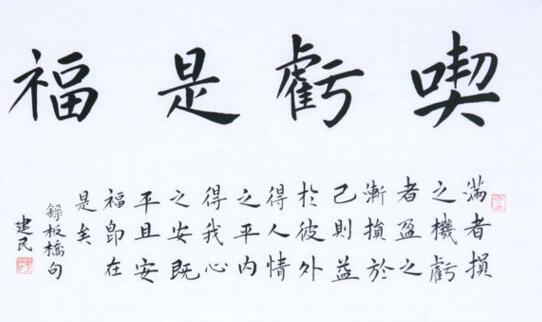 喫虧是福
滿者損
之機虧
者盈之
漸損於
己則益
於彼外
得人情
之平内
得我心
之安既
平且安
福即在
是矣
錄板橋句
建民